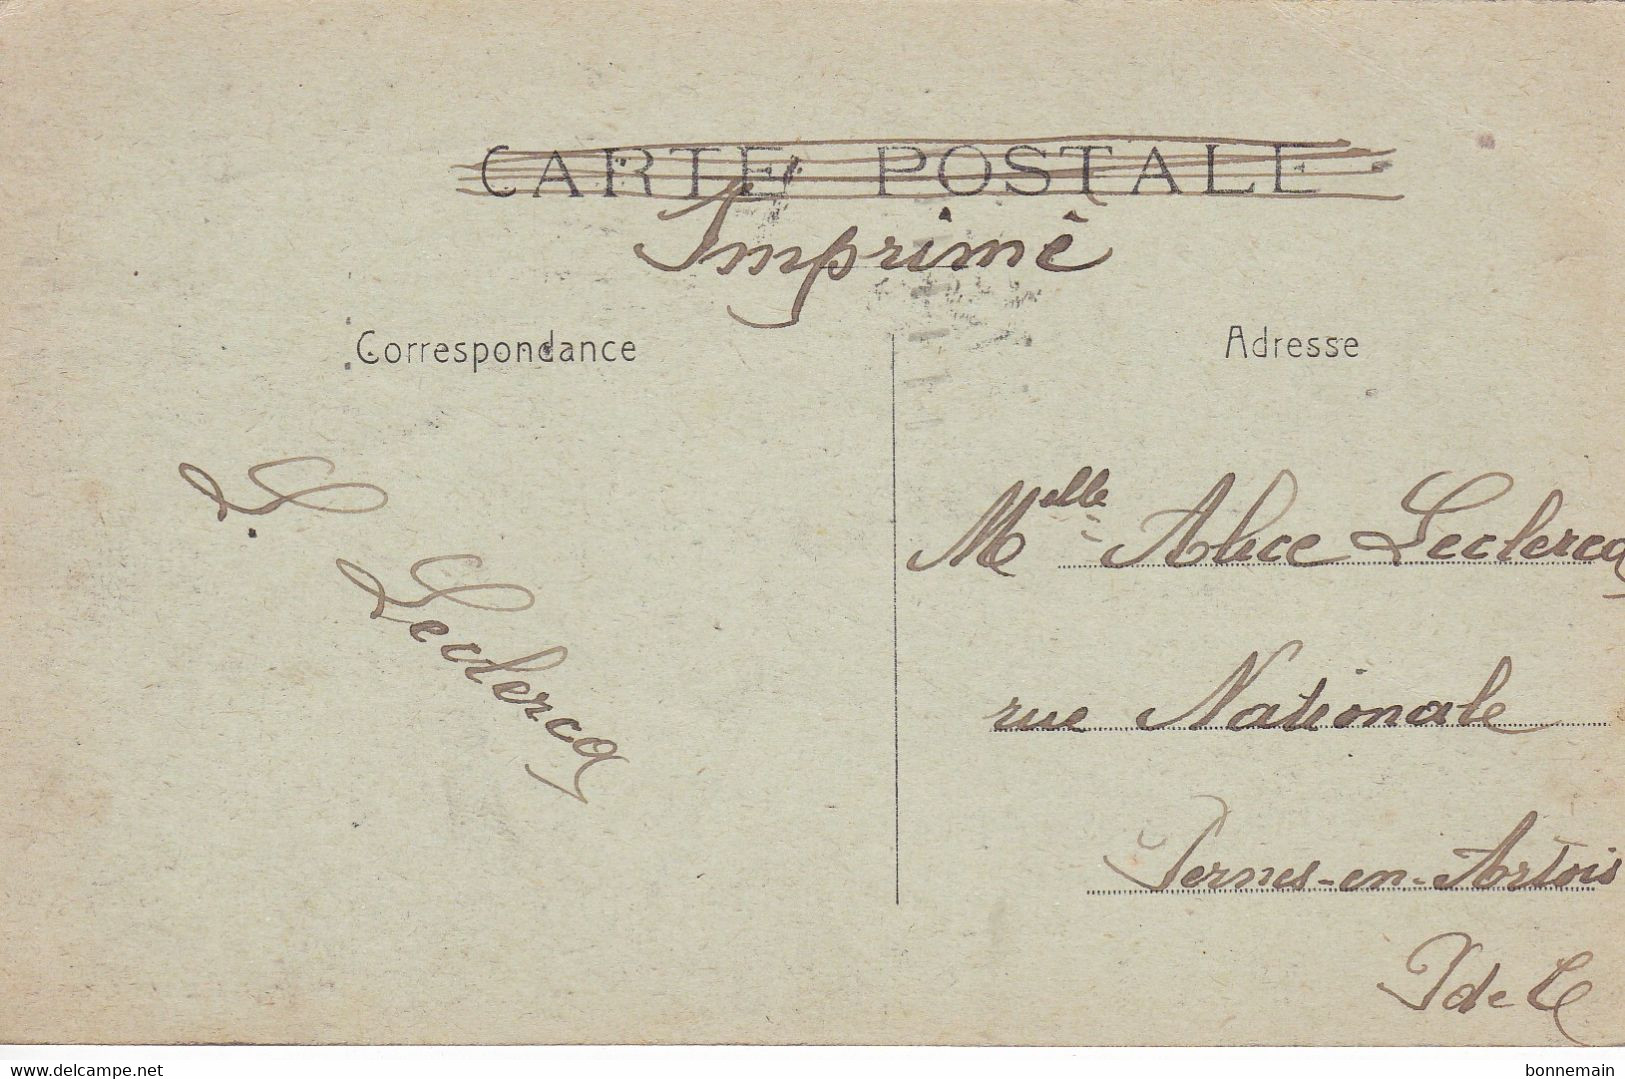 CARTE POSTALE
Imprimé
Correspondance
Adresse
L. Leclercq
Melle Alice Leclercq
rue Nationale
Pernes-en-Artois
P de C
delcampe.net
bonnemain